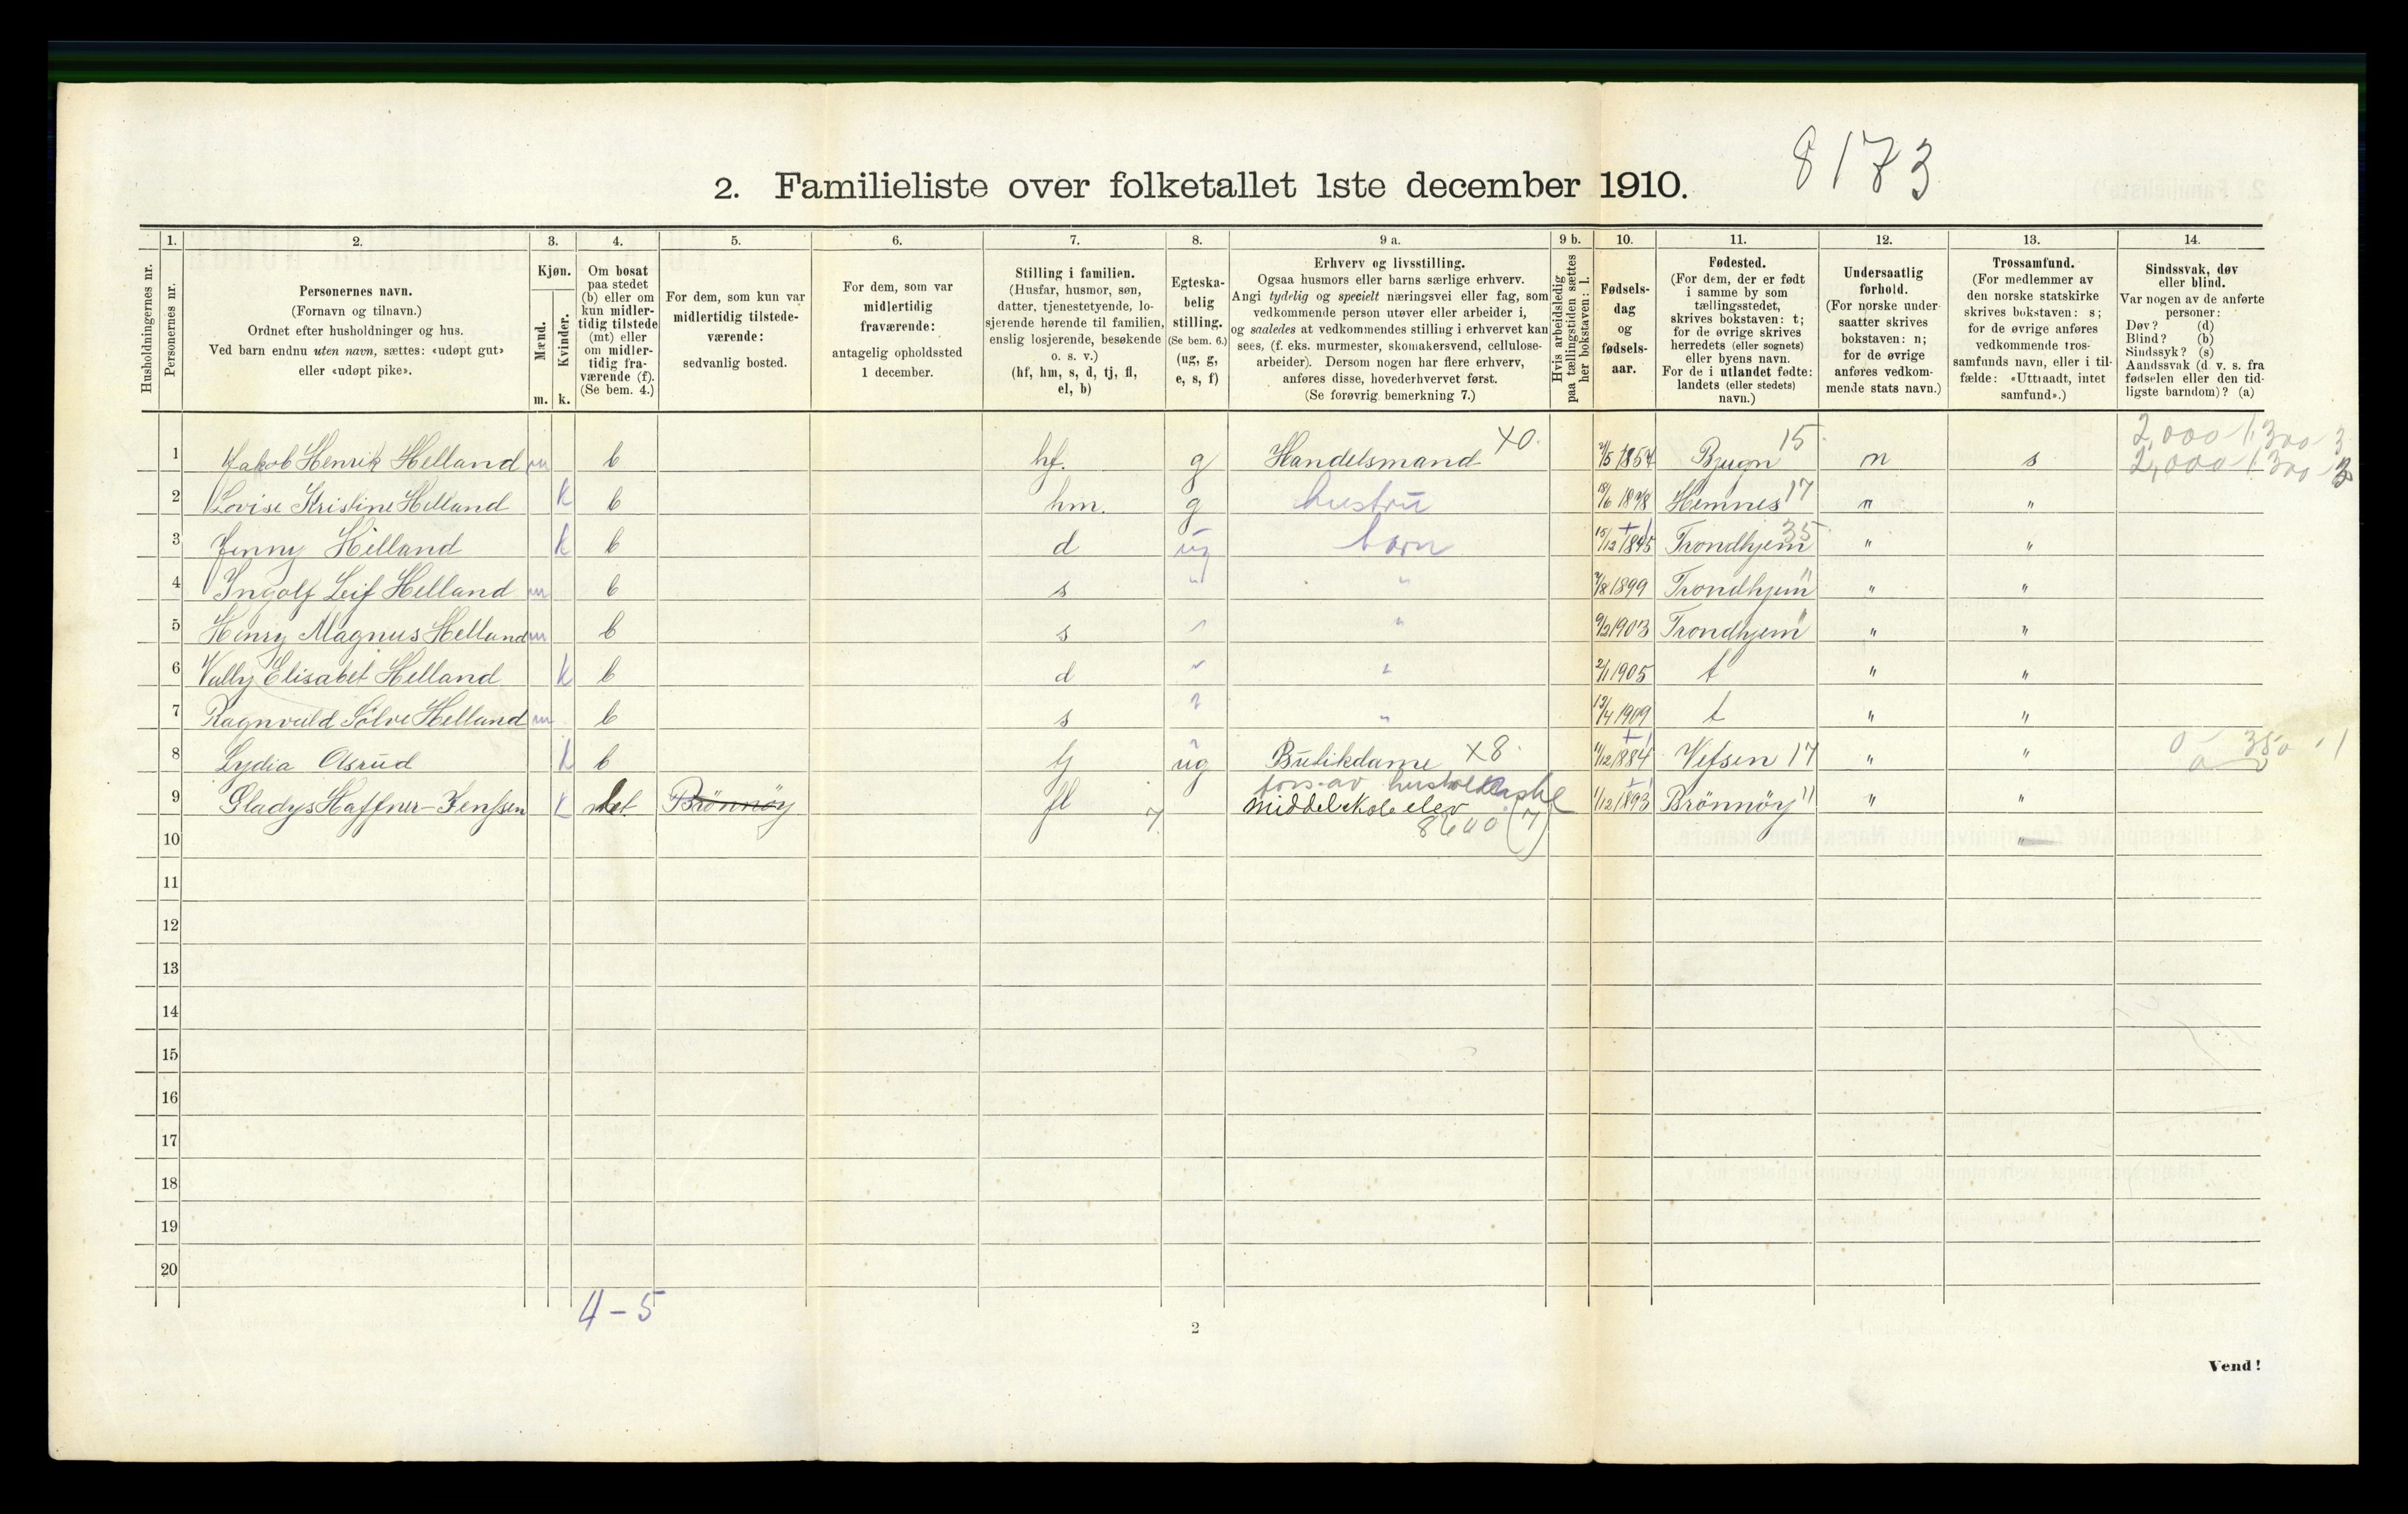 8173
2. Familieliste over folketallet 1ste december 1910.
Husholdningernes nr.
1. Personernes nr.
2. Personernes navn. (Fornavn og tilnavn.) Ordnet efter husholdninger og hus. Ved barn endnu uten navn, sættes: «udøpt gut» eller «udøpt pike».
3. Kjøn. Mænd. m. Kvinder. k.
4. Om bosat paa stedet (b) eller om kun midlertidig tilstede (mt) eller om midlertidig fraværende (f). (Se bem. 4.)
5. For dem, som kun var midlertidig tilstedeværende: sedvanlig bosted.
6. For dem, som var midlertidig fraværende: antagelig opholdssted 1 december.
7. Stilling i familien. (Husfar, husmor, søn, datter, tjenestetyende, losjerende hørende til familien, enslig losjerende, besøkende o. s. v.) (hf, hm, s, d, tj, fl, el, b)
8. Egteskabelig stilling. (Se bem. 6.) (ug, g, e, s, f)
9 a. Erhverv og livsstilling. Ogsaa husmors eller barns særlige erhverv. Angi tydelig og specielt næringsvei eller fag, som vedkommende person utøver eller arbeider i, og saaledes at vedkommendes stilling i erhvervet kan sees, (f. eks. murmester, skomakersvend, cellulosearbeider). Dersom nogen har flere erhverv, anføres disse, hovederhvervet først. (Se forøvrig bemerkning 7.)
9 b. Hvis arbeidsledig paa tællingstiden sættes her bokstaven: l.
10. Fødselsdag og fødselsaar.
11. Fødested. (For dem, der er født i samme by som tællingsstedet, skrives bokstaven: t; for de øvrige skrives herredets (eller sognets) eller byens navn. For de i utlandet fødte: landets (eller stedets) navn.)
12. Undersaatlig forhold. (For norske undersaatter skrives bokstaven: n; for de øvrige anføres vedkommende stats navn.)
13. Trossamfund. (For medlemmer av den norske statskirke skrives bokstaven: s; for de øvrige anføres vedkommende trossamfunds navn, eller i tilfælde: «Uttraadt, intet samfund».)
14. Sindssvak, døv eller blind. Var nogen av de anførte personer: Døv? (d) Blind? (b) Sindssyk? (s) Aandssvak (d. v. s. fra fødselen eller den tidligste barndom)? (a)
1 Jakob Henrik Helland m b hf. g Handelsmand X0 1854 Bjugn 15 n s 2,000 1300 3
2,000 1300 3
2 Lovise Kristine Helland k b hm. g hustru Hemnes 17 n "
3 Jenny Helland k b d ug barn 15/12 Trondhjem 35 " "
4 Ingolf Leif Helland m b s " " 1899 Trondhjem " " "
5 Henry Magnus Helland m b s " " 1903 Trondhjem " " "
6 Vally Elisabet Helland k b d " " 2/1 1905 t " "
7 Ragnvald Sölve Helland m b s " " 13/4 1909 t " "
8 Lydia Olsrud k b tj ug Butikdame X8 11/12 1884 Vefsen 17 " " 0 350 1
9 Gladys Haffner-Jenssen k Brönnöy fl 7 fors. av
middelskoleelev 1/12 1893 Brönnöy " " "
8600 (7)
10 "
11
12
13
14
15
16
17
18
19
20
4-5
2
Vend!